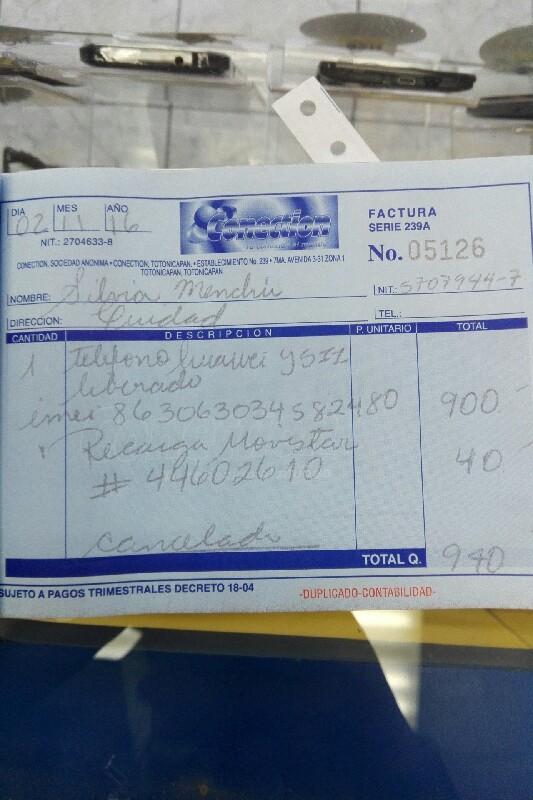 DIA MES AÑO
02 11 16
NIT.: 2704633-8
Conection
FACTURA
SERIE 239A
No. 05126
CONECTION, SOCIEDAD ANONIMA • CONECTION, TOTONICAPAN. • ESTABLECIMIENTO No. 239 • 7MA. AVENIDA 3-31 ZONA 1
TOTONICAPAN, TOTONICAPAN.
NOMBRE: Silvia Menchú NIT.: 5707944-7
DIRECCION: Ciudad TEL.:
CANTIDAD DESCRIPCION P. UNITARIO TOTAL
1 telefono huawei y511
liberado
imei 863063034582480 900
Recarga Movistar
# 44602610 40
cancelado
TOTAL Q. 940
SUJETO A PAGOS TRIMESTRALES DECRETO 18-04 -DUPLICADO-CONTABILIDAD-